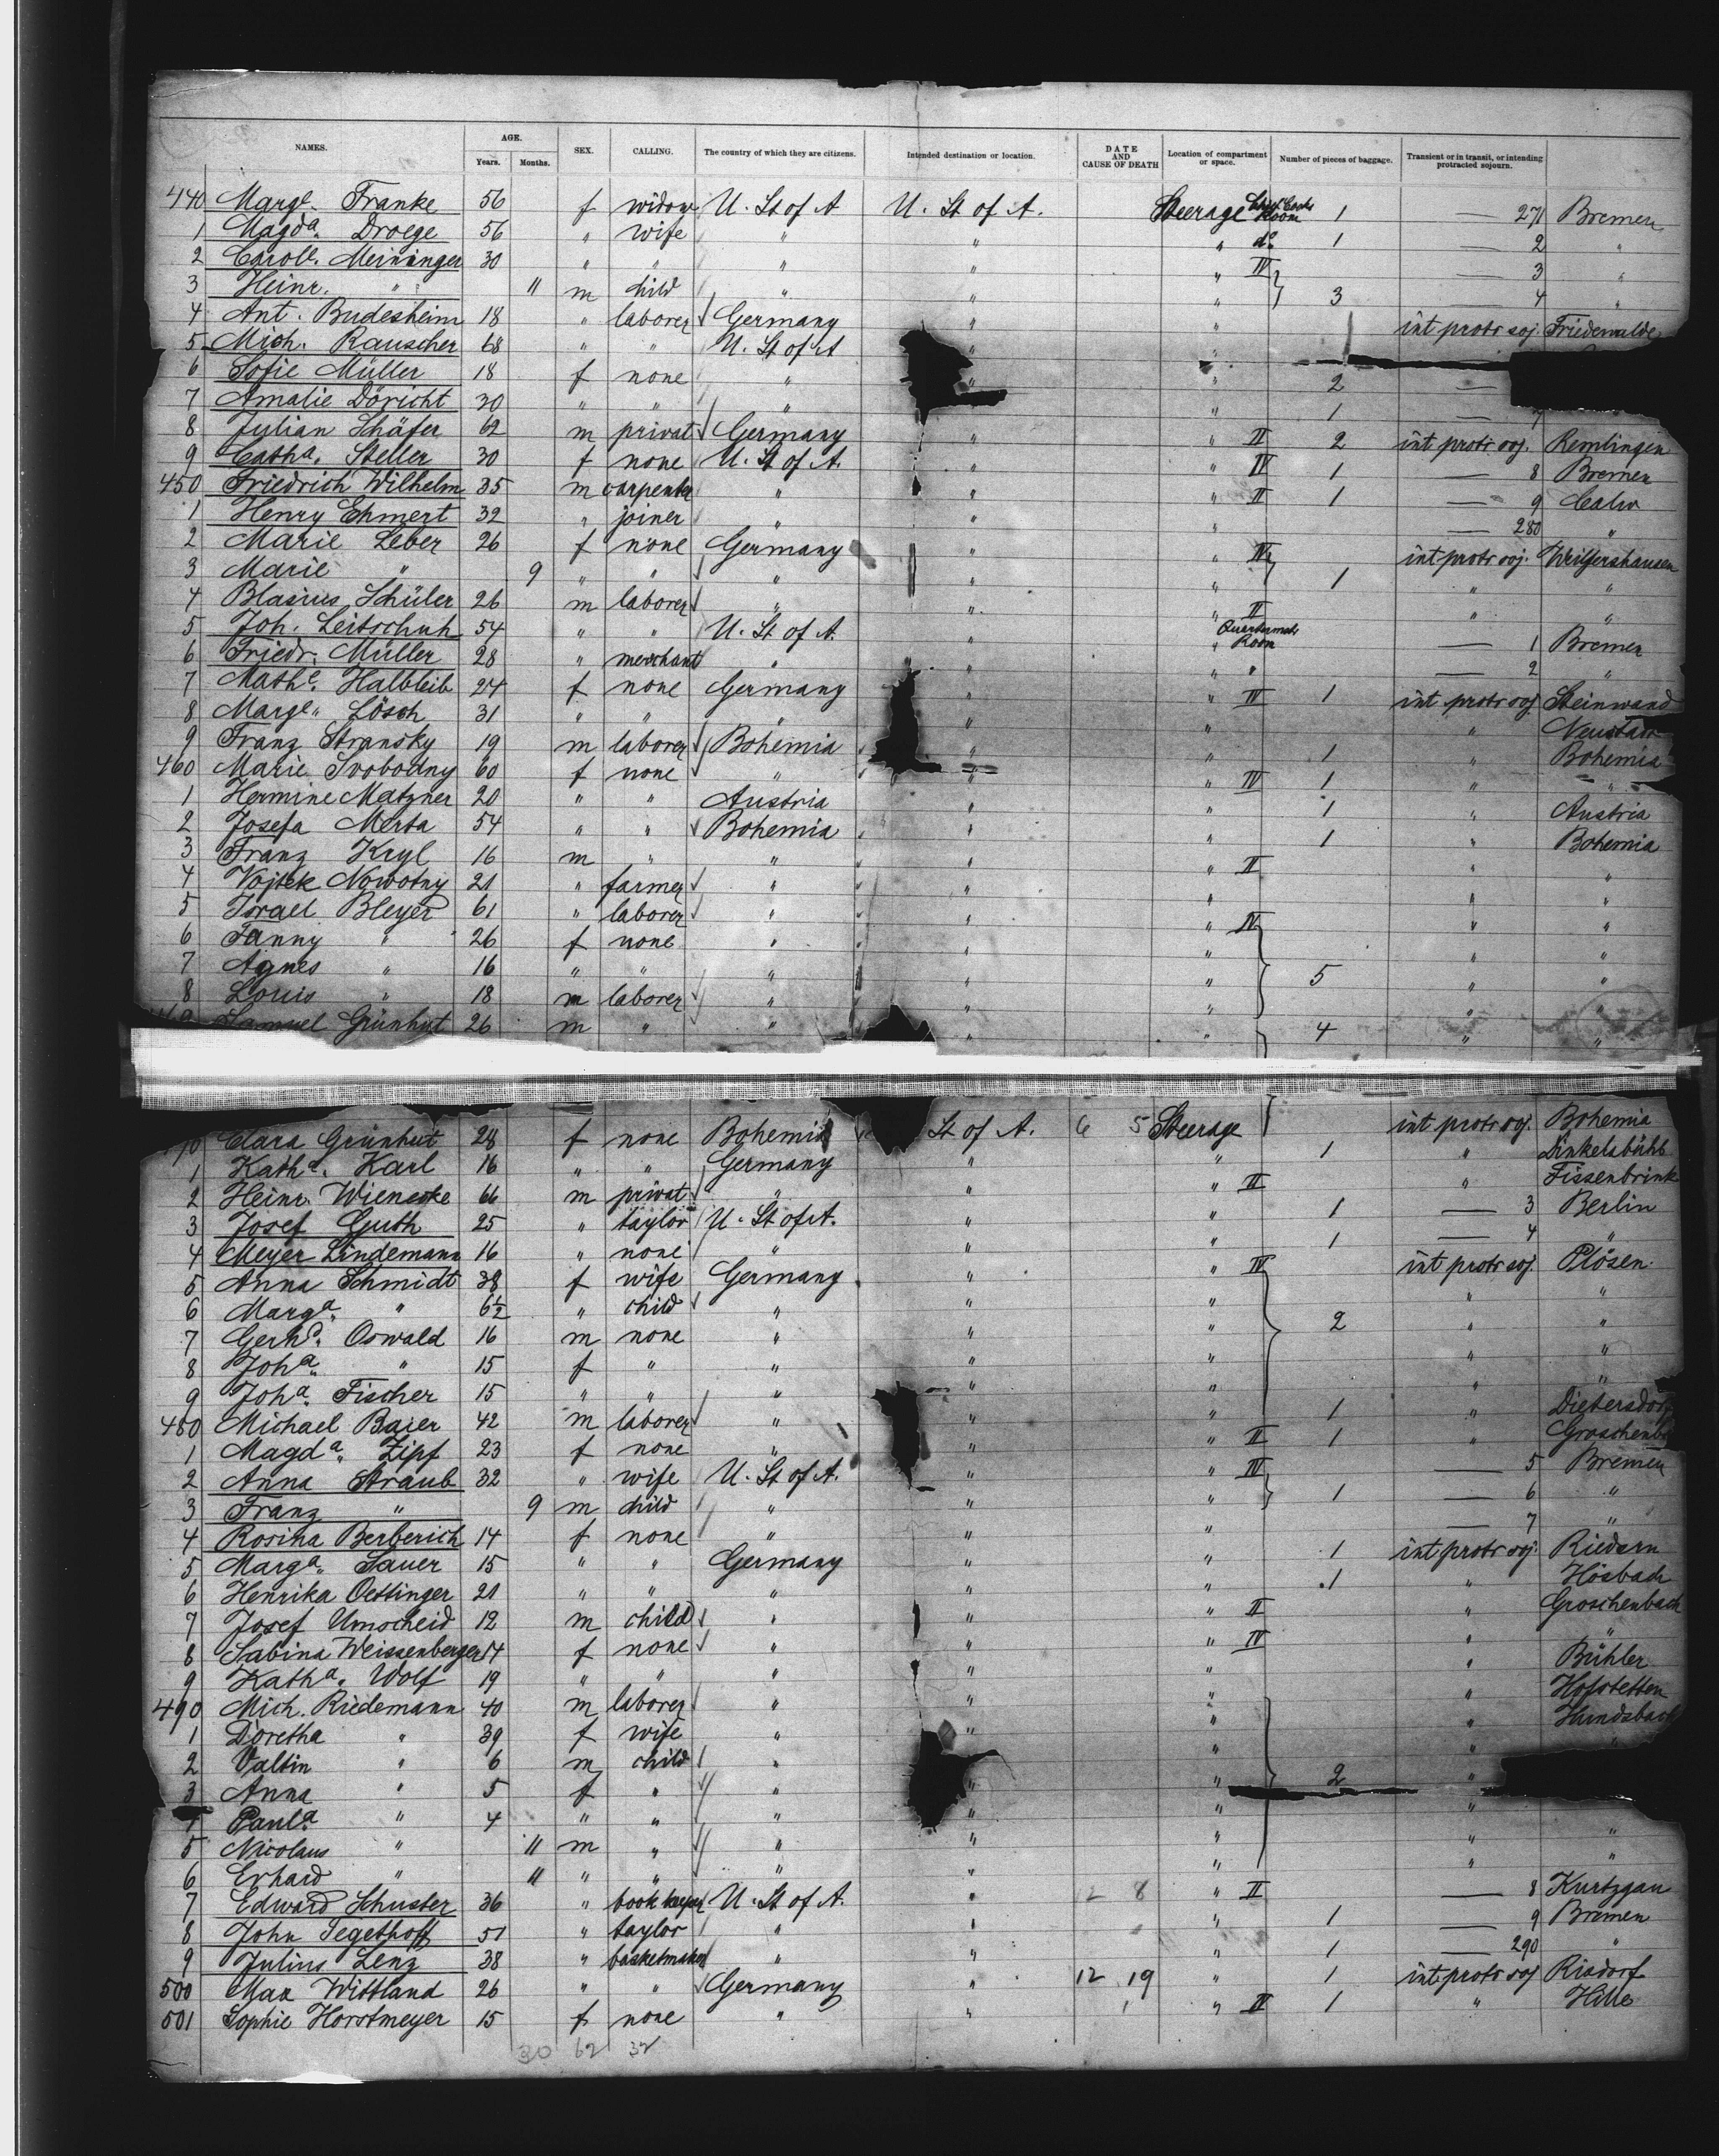 NAMES. AGE. Years. Months. SEX. CALLING. The country of which they are citizens. Intended destination or location. DATE AND CAUSE OF DEATH Location of compartment or space. Number of pieces of baggage. Transient or in transit, or intending protracted sojourn.
440 Marge. Franke 56 f widow U. St of A U. St of A. Steerage Room 1 — 271 Bremen
1 Magda. Droege 56 " wife " " " do 1 — 2 "
2 Carole. Meininger 30 " " " " " IV — 3 "
3 Heinr. " 11 m child " " " 3 — 4 "
4 Ant. Budesheim 18 " laborer Germany " " 1 int protr soj. Friedewalde
5 Mich. Rauscher 68 " " U. St of A " "
6 Sofie Müller 18 f none " " " 2 —
7 Amalie Döricht 30 " " " " 1 — 7
8 Julian Schäfer 62 m privat Germany " " II 2 int protr soj. Remlingen
9 Catha. Steller 30 f none U. St of A. " " IV 1 — 8 Bremen
450 Friedrich Wilhelm 35 m carpenter " " " II 1 — 9 Calw
1 Henry Ehmert 32 " joiner " " " — 280 "
2 Marie Leber 26 f none Germany " " IV int protr soj.
3 Marie " 9 " " " " " 1 " "
4 Blasius Schüler 26 m laborer " " " II " "
5 Joh. Leitschuh 54 " " U. St of A. " " Quartermstr Room — 1 Bremen
6 Friedr. Müller 28 " merchant " " " " — 2 "
7 Mathe. Halbleib 24 f none Germany " " IV 1 int protr soj Steinwand
8 Marge. Lösch 31 " " " " " " Neustadt
9 Franz Stransky 19 m laborer Bohemia " " 1 " Bohemia
460 Marie Svobodny 60 f none " " " IV 1 " "
1 Hermine Matzner 20 " " Austria " " 1 " Austria
2 Josefa Merta 54 " " Bohemia " " 1 " Bohemia
3 Franz Kryl 16 m " " " " II " "
4 Vojtek Nowotny 21 " farmer " " " " "
5 Israel Bleyer 61 " laborer " " " IV " "
6 Fanny " 26 f none " " " " "
7 Agnes " 16 " " " " " 5 " "
8 Louis " 18 m laborer " " " " "
469 Samuel Grünhut 26 m " " " " 4 " "
470 Clara Grünhut 28 f none Bohemia St of A. 6 5 Steerage int protr soj. Bohemia
1 Katha. Karl 16 " " Germany " " 1 " Dinkelsbühl
2 Heinr. Wienecke 66 m privat " " " II " Fissenbrink
3 Josef Guth 25 " taylor U. St of A. " " 1 — 3 Berlin
4 Meyer Lindemann 16 " none " " " 1 — 4 "
5 Anna Schmidt 38 f wife Germany " " IV int protr soj. Plösen
6 Marga. " 6½ " child " " " " "
7 Gerhd. Oswald 16 m none " " " 2 " "
8 Joha. " 15 f " " " " " "
9 Joha. Fischer 15 " " " " " " "
480 Michael Baier 42 m laborer " " " 1 " Dietersdorf
1 Magda. Zipf 23 f none " " " II 1 "
2 Anna Straub 32 " wife U. St of A. " " IV — 5 Bremen
3 Franz " 9 m child " " " 1 — 6 "
4 Rosina Berberich 14 f none " " " — 7 "
5 Marga. Sauer 15 " " Germany " " 1 int protr soj. Riedern
6 Henrika Oettinger 21 " " " " " 1 " Hösbach
7 Josef Umscheid 12 m child " " " II " Groschenbach
8 Sabina Weissenberger 14 f none " " " IV " "
9 Katha. Wolf 19 " " " " " " Bühler
490 Mich. Riedemann 40 m laborer " " " " Hofstetten
1 Doretha " 39 f wife " " " " Hundsbach
2 Valtin " 6 m child " " "
3 Anna " 5 f " " " " 2 "
4 Paula. " 4 " " " " " "
5 Nicolaus " 11 m " " " " " "
6 Erhard " 11 " " " " " " "
7 Edward Schuster 36 " book keeper U. St of A. " 12 8 " II — 8 Kurtzgau
8 John Tegethoff 51 " taylor " " " 1 — 9 Bremen
9 Julius Lenz 38 " basketmaker " " " 1 — 290 "
500 Max Wittland 26 " " Germany " 12 19 " 1 int protr soj Risdorf
501 Sophie Horstmeyer 15 f none " " " II 1 " Hille
30 62 32